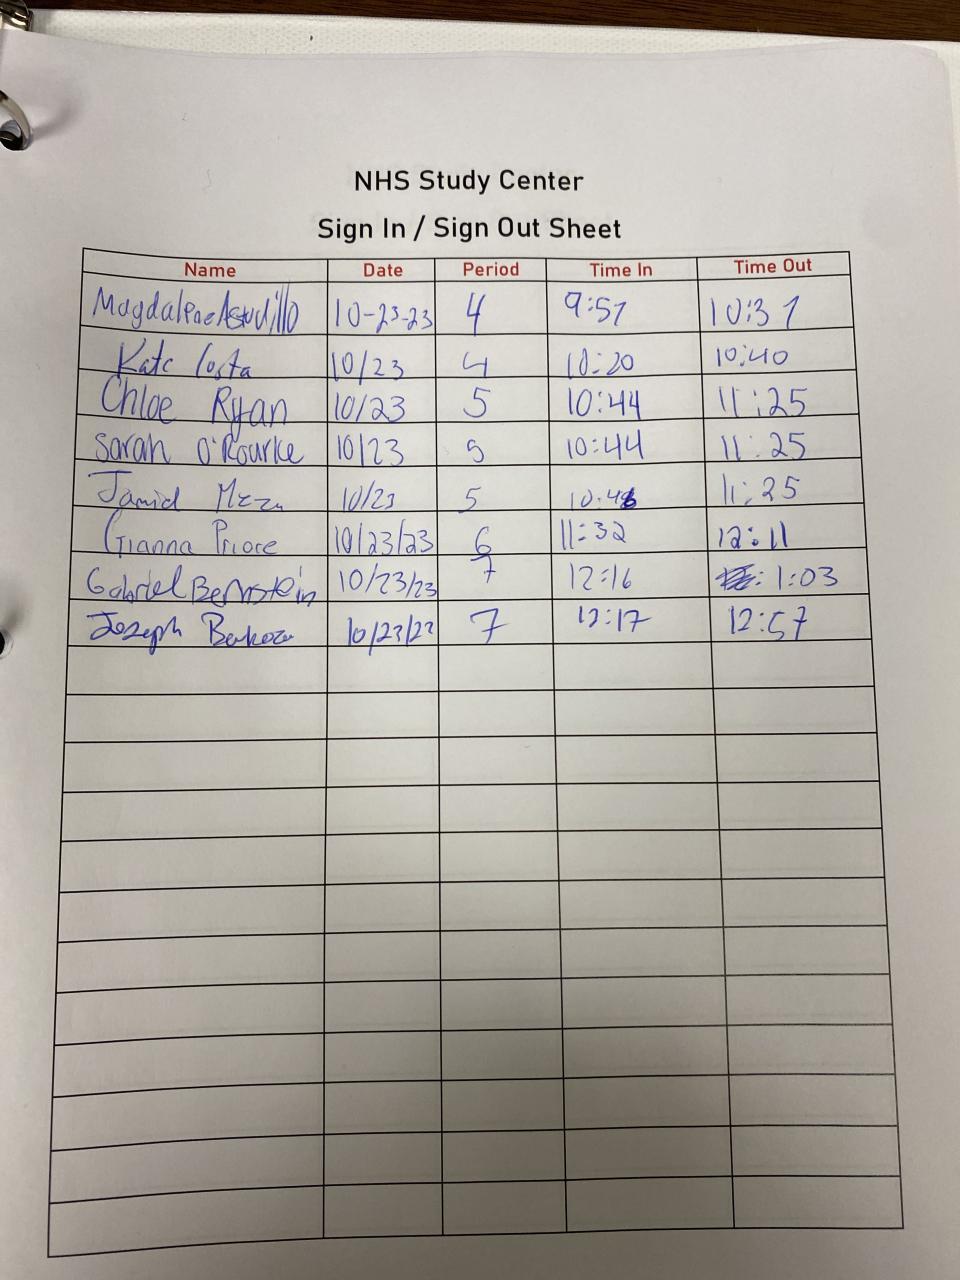 NHS Study Center
Sign In / Sign Out Sheet
Name Date Period Time In Time Out
Magdalene Astudillo 10-23-23 4 9:57 10:37
Kate Costa 10/23 4 10:20 10:40
Chloe Ryan 10/23 5 10:44 11:25
Sarah O'Rourke 10/23 5 10:44 11:25
10/23 5 10:48 11:25
Gianna Priore 10/23/23 6 11:32 12:11
Gabriel Bernstein 10/23/23 7 12:16 1:03
Joseph 10/23/23 7 12:17 12:57